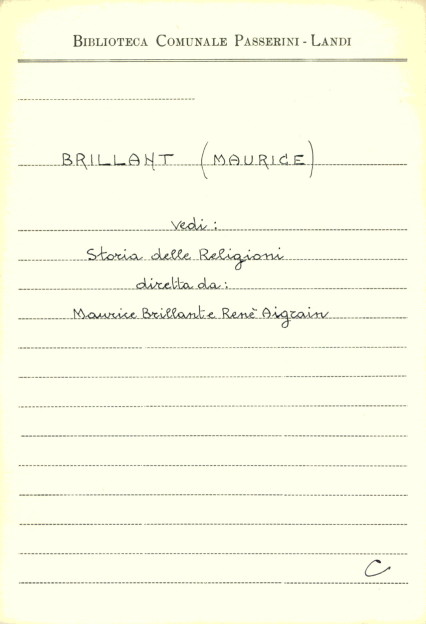 BIBLIOTECA COMUNALE PASSERINI - LANDI
BRILLANT (MAURICE)
vedi:
Storia delle Religioni
diretta da:
Maurice Brillant e Renè Aigrain
C